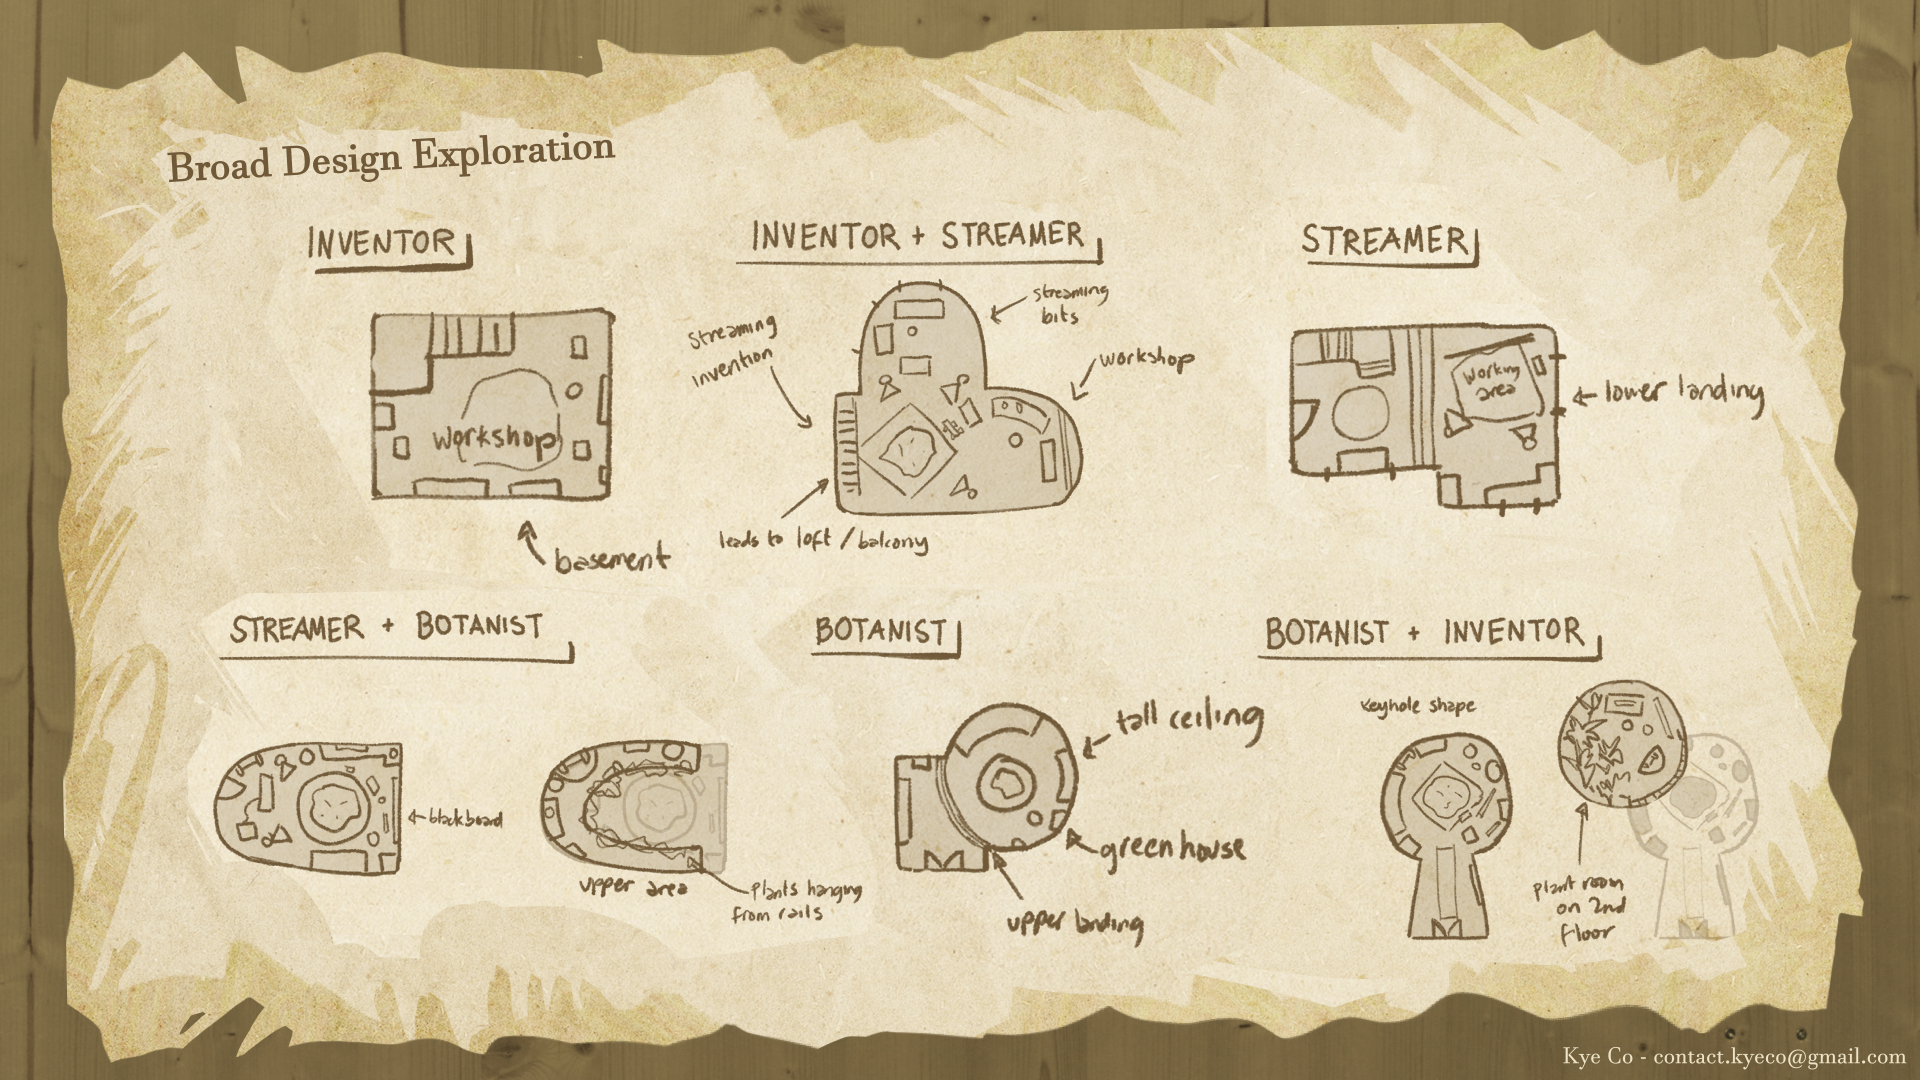 Broad Design Exploration
INVENTOR
workshop
basement
INVENTOR + STREAMER
streaming
bits
streaming
invention
workshop
leads to loft / balcony
STREAMER
working
area
lower landing
STREAMER + BOTANIST
blackboard
upper area
plants hanging
from rails
BOTANIST
tall ceiling
greenhouse
upper landing
BOTANIST + INVENTOR
keyhole shape
plant room
on 2nd
floor
Kye Co - contact.kyeco@gmail.com